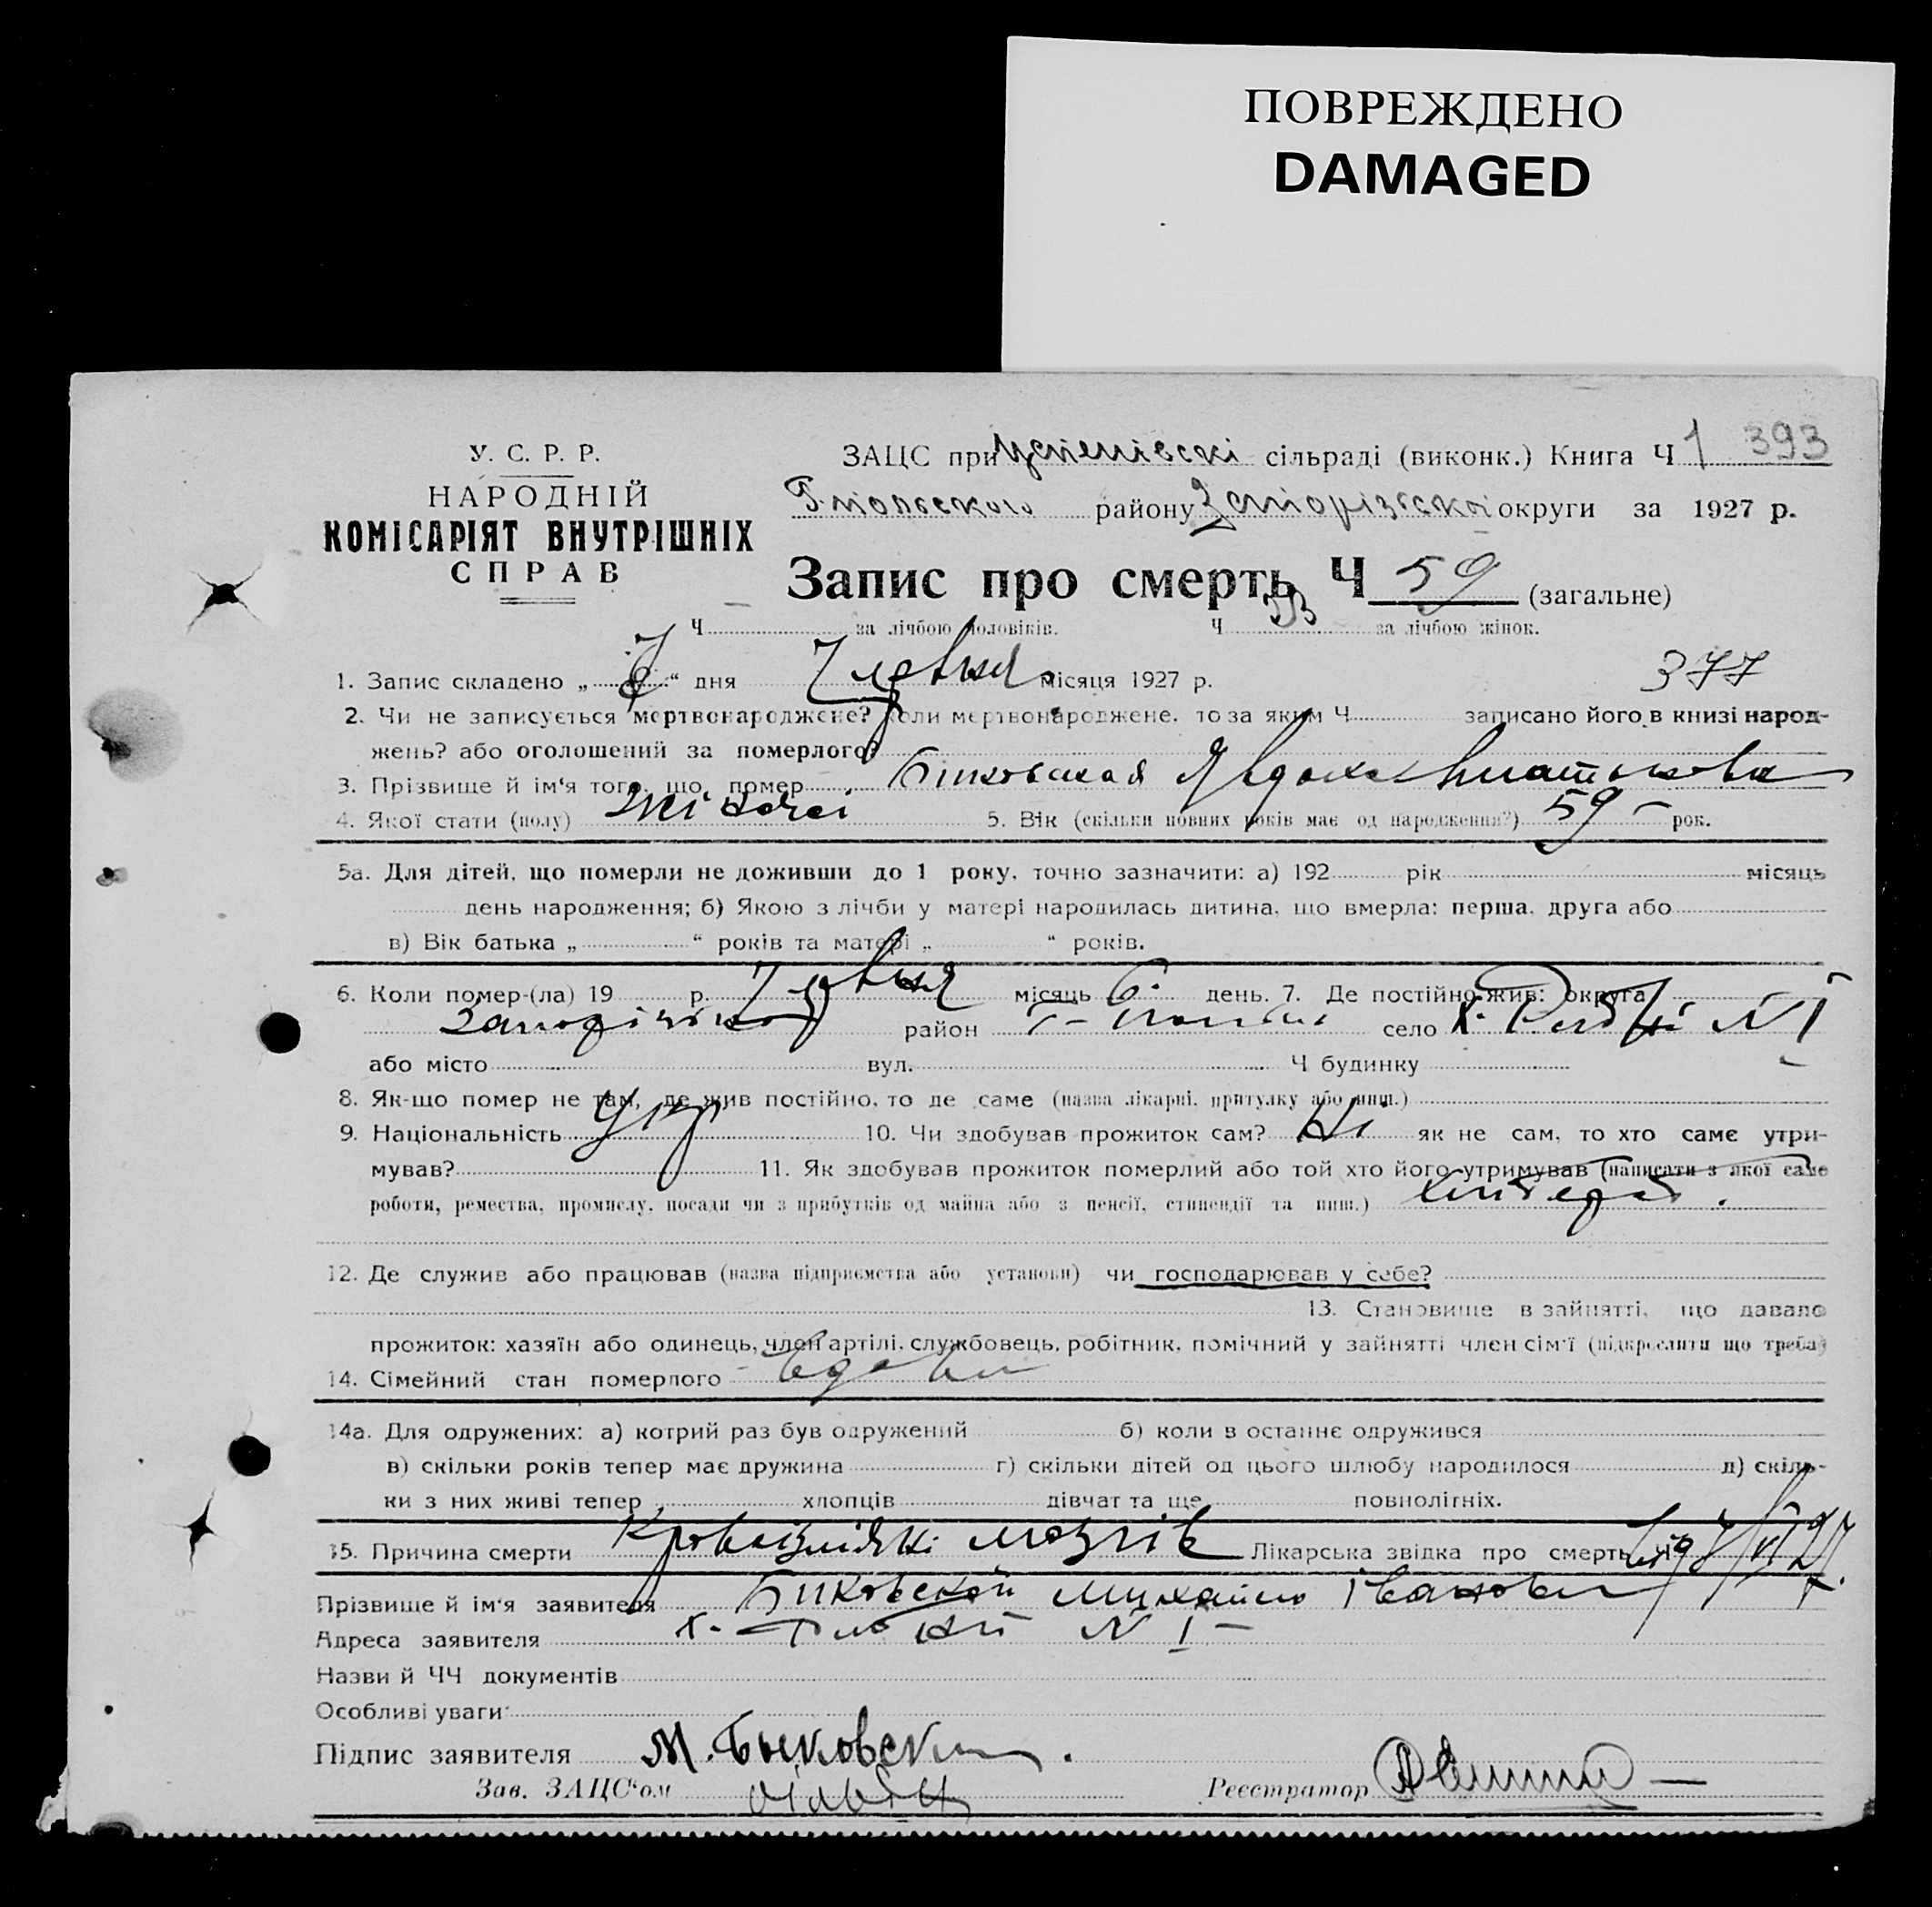 ПОВРЕЖДЕНО
DAMAGED
У. С. Р. Р.
НАРОДНІЙ
КОМІСАРІЯТ ВНУТРІШНІХ
СПРАВ
ЗАЦС при Успенівскі сільраді (виконк.) Книга Ч 1 393
району Запорізської округи за 1927 р.
Запис про смерть Ч 59 (загальне)
Ч за лічбою чоловіків. Ч 33 за лічбою жінок.
1. Запис складено „ 7 “ дня Червня місяця 1927 р. 377
2. Чи не записується мертвонароджене? коли мертвонароджене, то за яким Ч записано його в книзі народ-
жень? або оголошений за померлого?
3. Прізвище й ім'я того, що помер Биковская Явдоха
4. Якої стати (полу) жіночої 5. Вік (скільки повних років має од народження?) 59 рок.
5а. Для дітей, що померли не доживши до 1 року, точно зазначити: а) 192 рік місяць
день народження; б) Якою з лічби у матері народилась дитина, що вмерла: перша, друга або
в) Вік батька „ “ років та матері „ “ років.
6. Коли помер-(ла) 19 р. Червня місяць 6 день. 7. Де постійно жив: округа
район село х. №1
або місто вул. Ч будинку
8. Як-що помер не там, де жив постійно, то де саме (назва лікарні, притулку або инш.)
9. Національність Укр 10. Чи здобував прожиток сам? Ні як не сам, то хто саме утри-
мував? 11. Як здобував прожиток померлий або той хто його утримував (написати з якої саме
роботи, ремества, промислу, посади чи з прибутків од майна або з пенсії, стипендії та инш.) хлібороб.
12. Де служив або працював (назва підприємства або установи) чи господарював у себе?
13. Становище в зайнятті, що давало
прожиток: хазяїн або одинець, член артілі, службовець, робітник, помічний у зайнятті член сім'ї (підкреслити що треба)
14. Сімейний стан померлого вдова
14а. Для одружених: а) котрий раз був одружений б) коли в останнє одружився
в) скільки років тепер має дружина г) скільки дітей од цього шлюбу народилося д) скіль-
ки з них живі тепер хлопців дівчат та ще повнолітніх.
15. Причина смерти мозгів Лікарська звідка про смерть Ч від 7/VI 27.
Прізвище й ім'я заявителя Биковской Михайло Іванович
Адреса заявителя х. № 1
Назви й ЧЧ документів
Особливі уваги
Підпис заявителя М. Быковский
Зав. ЗАЦС'ом
Реєстратор